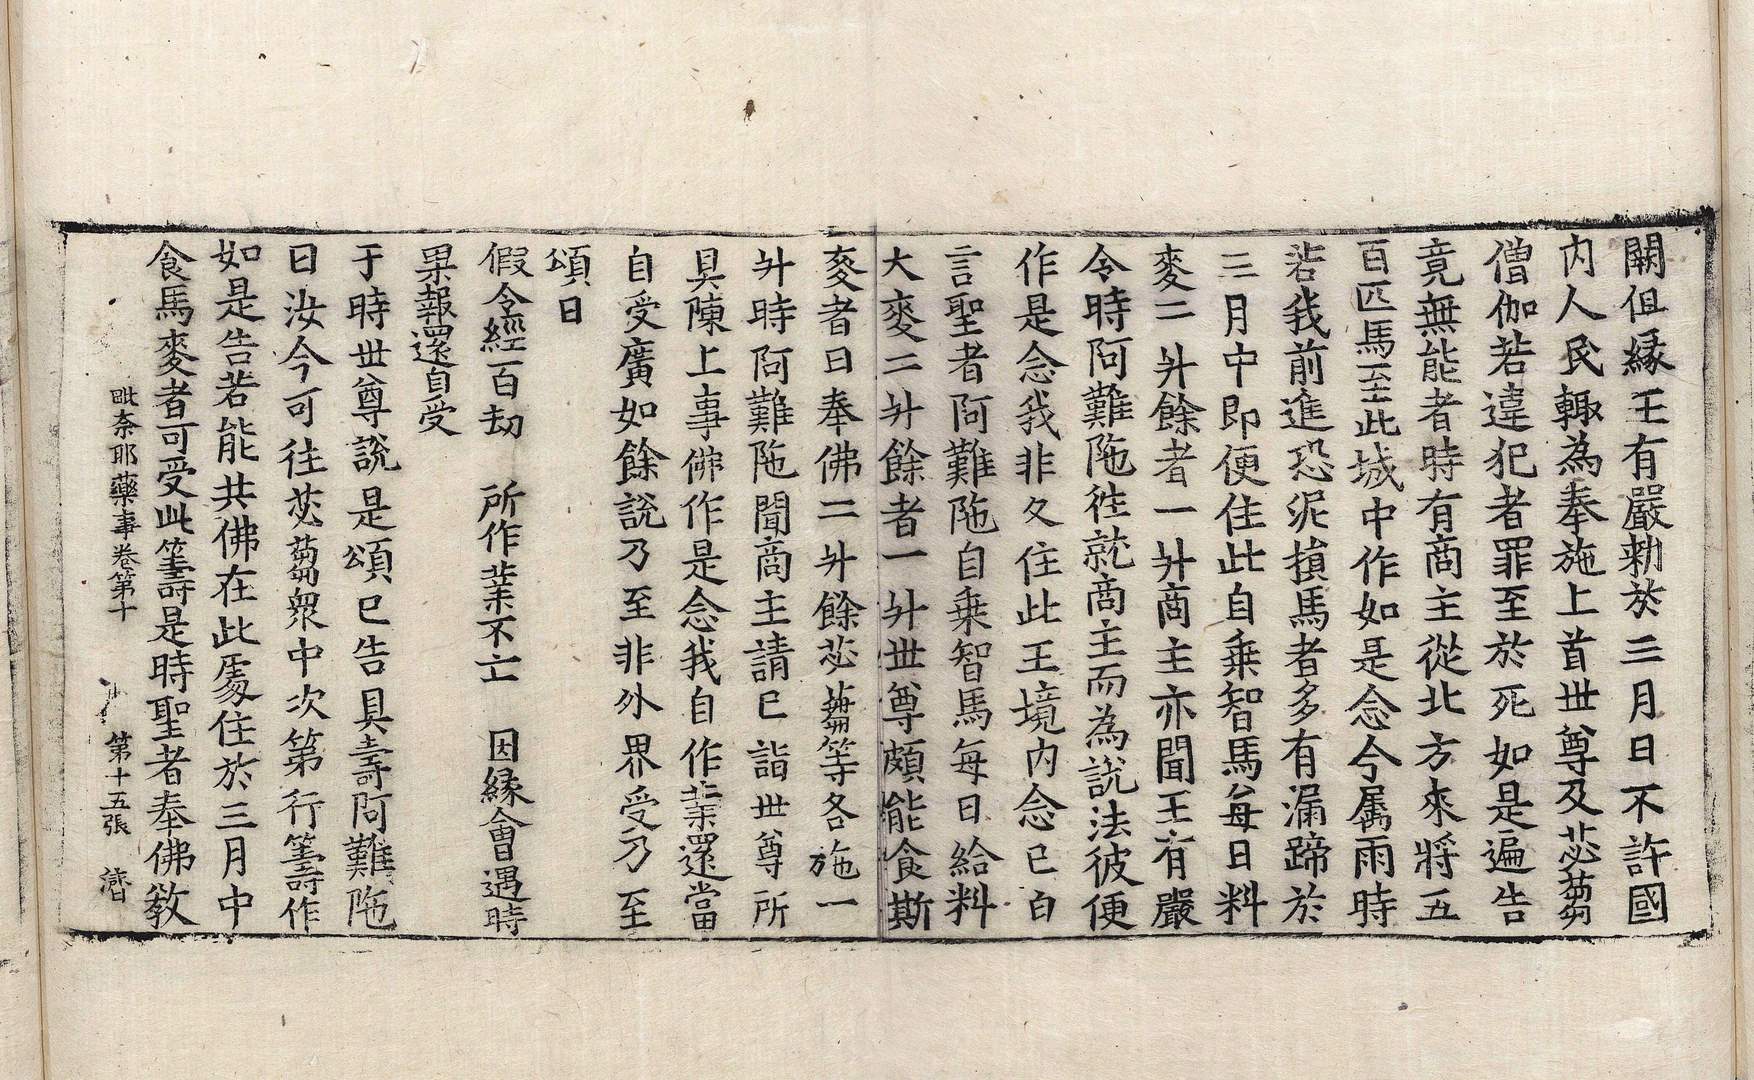 闕但縁王有嚴勑於三月日不許國
内人民輙為奉施上首世尊及苾蒭
僧伽若違犯者罪至於死如是遍告
竟無能者時有商主從北方來將五
百匹馬至此城中作如是念今属雨時
若我前進恐泥損馬者多有漏蹄於
三月中即便住此自乗智馬每日料
麥二升餘者一升商主亦聞王有嚴
令時阿難陁徃就商主而為說法彼便
作是念我非久住此王境内念已白
言聖者阿難陁自乗智馬每日給料
大麥二升餘者一升世尊頗能食斯
麥者曰奉佛二升餘苾蒭等各施一
升時阿難陁聞商主請已詣世尊所
具陳上事佛作是念我自作業還當
自受廣如餘說乃至非外界受乃至
頌曰
假令經百劫　所作業不亡　因縁會遇時
果報還自受
于時世尊說是頌已告具壽阿難陁
曰汝今可往苾蒭衆中次第行籌作
如是告若能共佛在此處住於三月中
食馬麥者可受此籌是時聖者奉佛敎
毗奈耶藥事卷第十　第十五張　濟